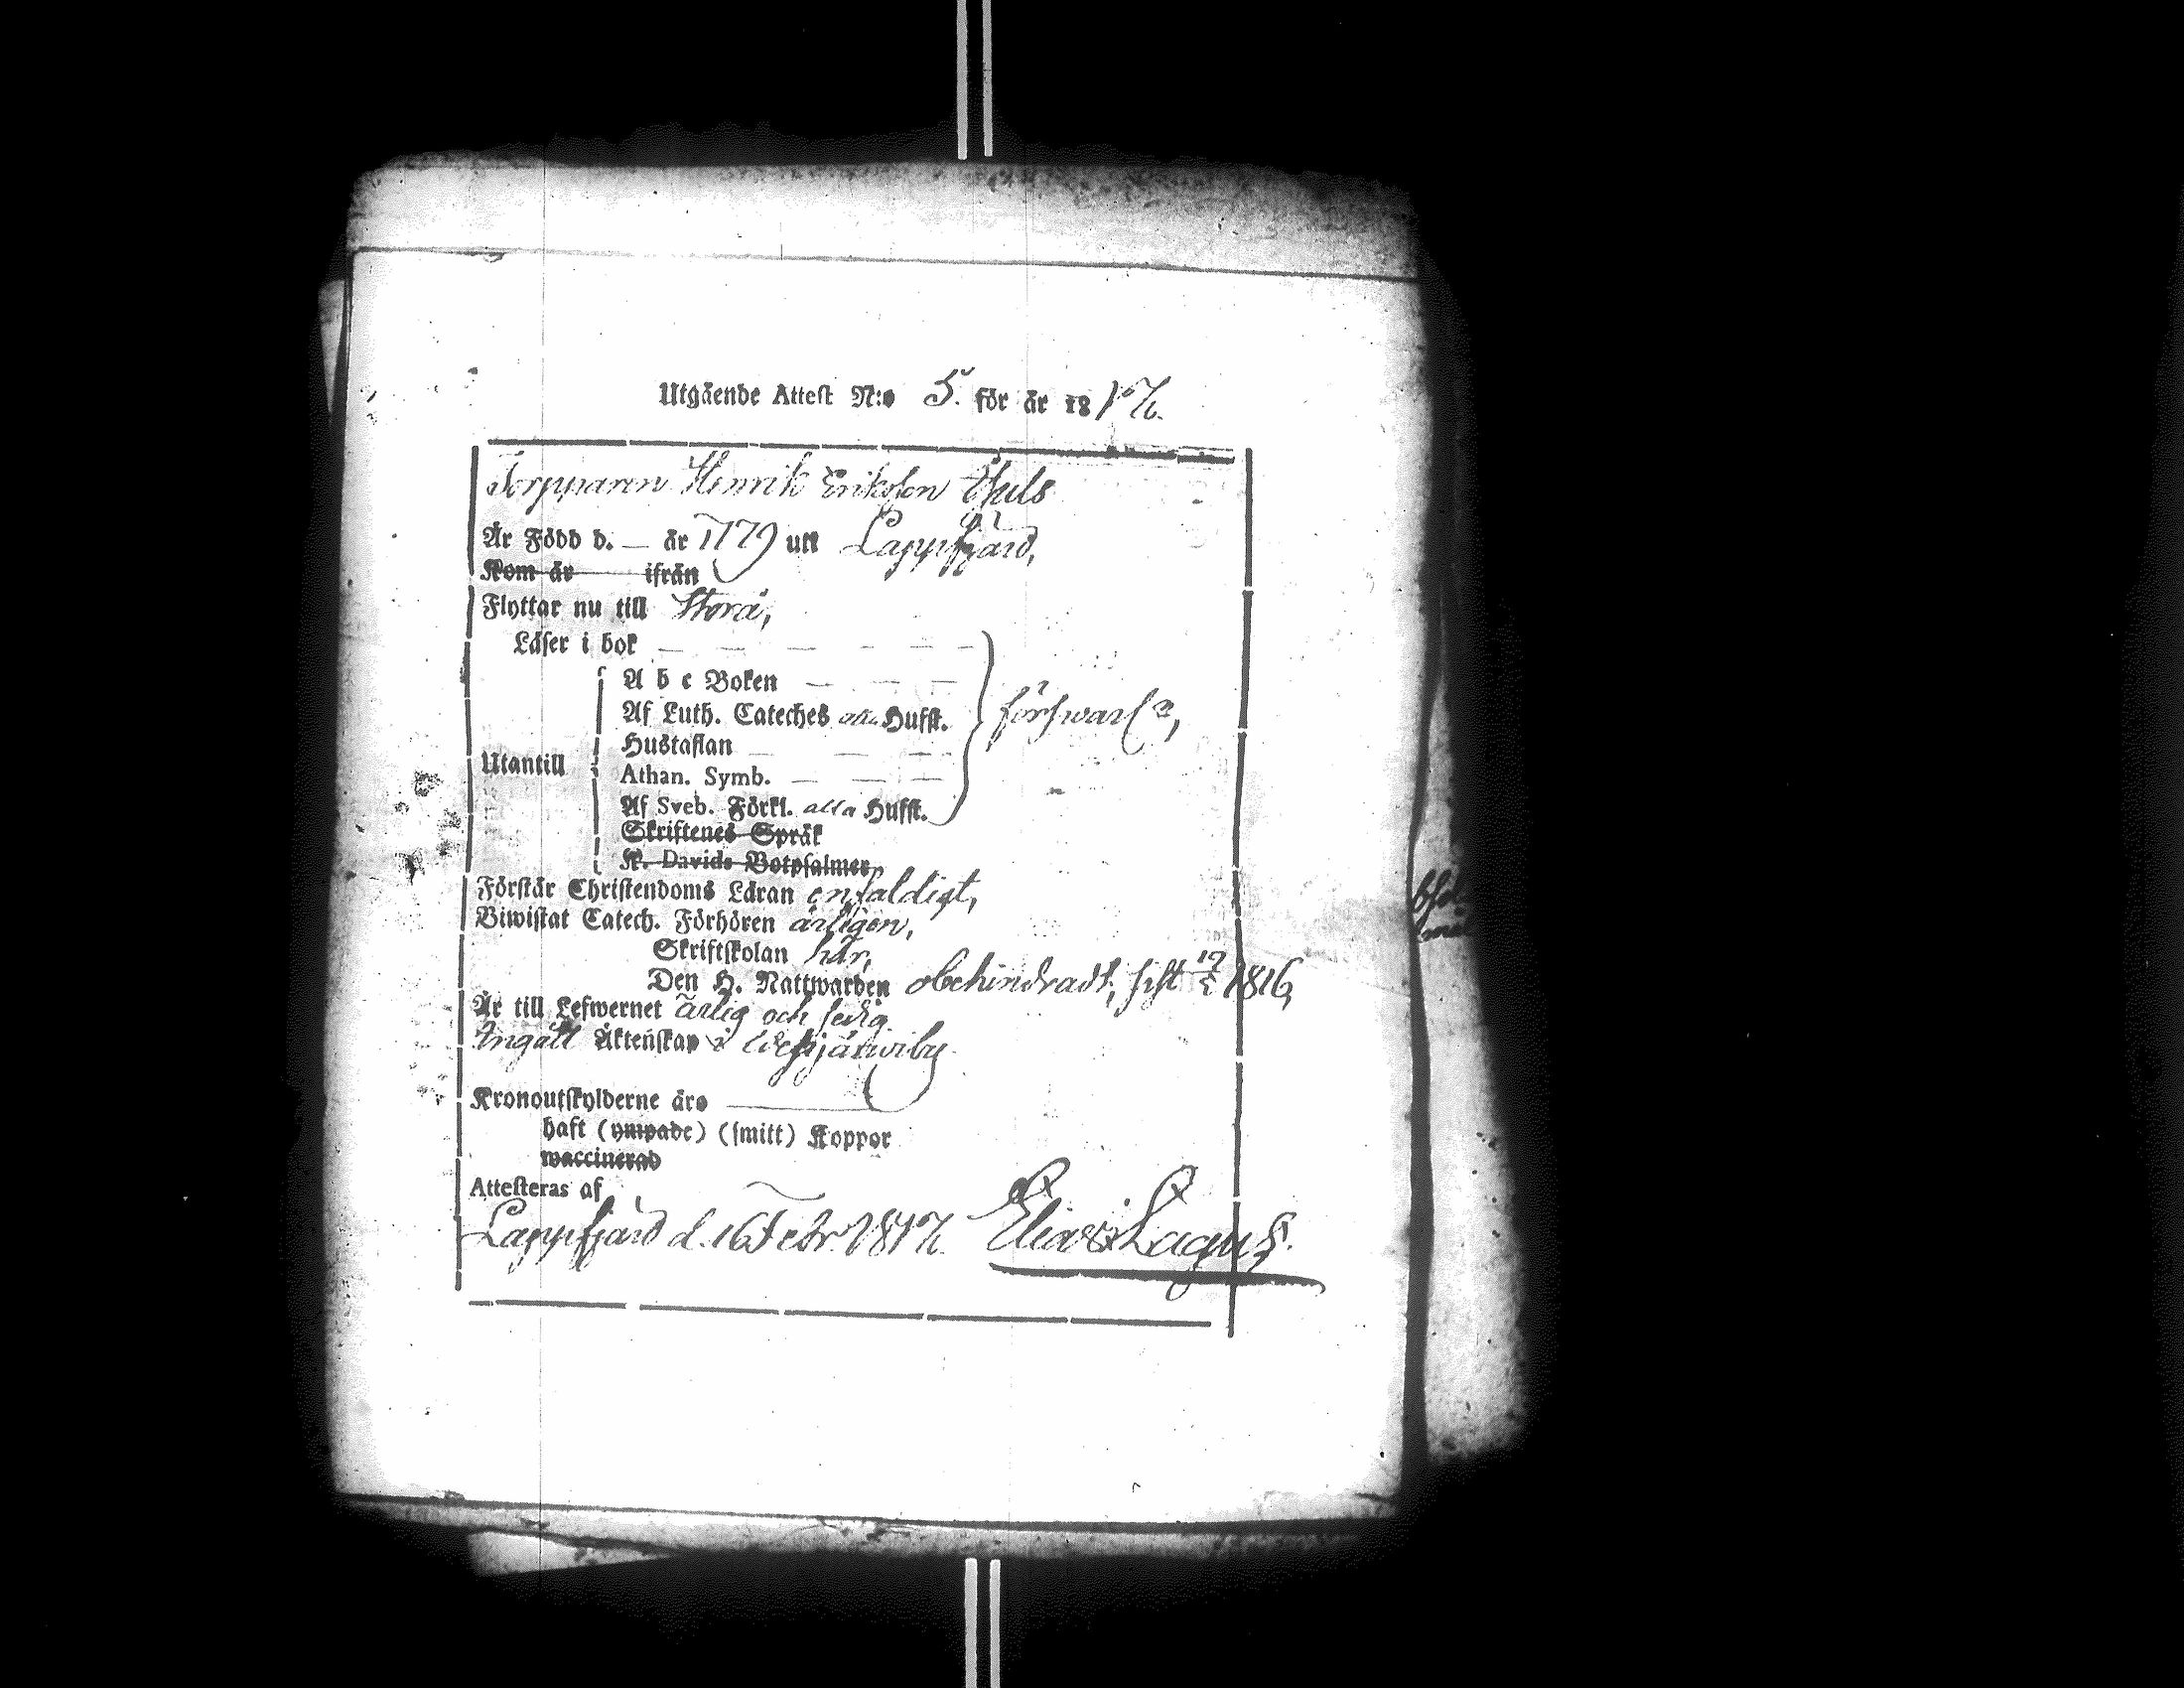 Utgående Attest N:o 5. för år 1817.
Torpparen Henrik Erikson
Är Född d. — år 1779 uti Lappfjärd,
Kom år ifrån
Flyttar nu till Storå,
Läser i bok — — — — — —
A b c Boken — — —
Af Luth. Cateches alla Hufst. försvarl:n,
Hustaflan — — —
Utantill
Athan. Symb. — — —
Af Sveb. Förkl. alla Hufst.
Skriftenes Språk
K. Davids Botpsalmer
Förstår Christendoms Läran enfaldigt,
Biwistat Catech. Förhören årligen,
Skriftskolan här,
Den H. Nattwarden obehindradt, sist 1816,
Är till Lefwernet ärlig och sedig
Ingått Äktenskap i
Kronoutskylderne äro
haft (ympade) (smitt) Koppor
waccinerad
Attesteras af
Lappfjärd d. 16 Febr. 1817. Elias Lagus.